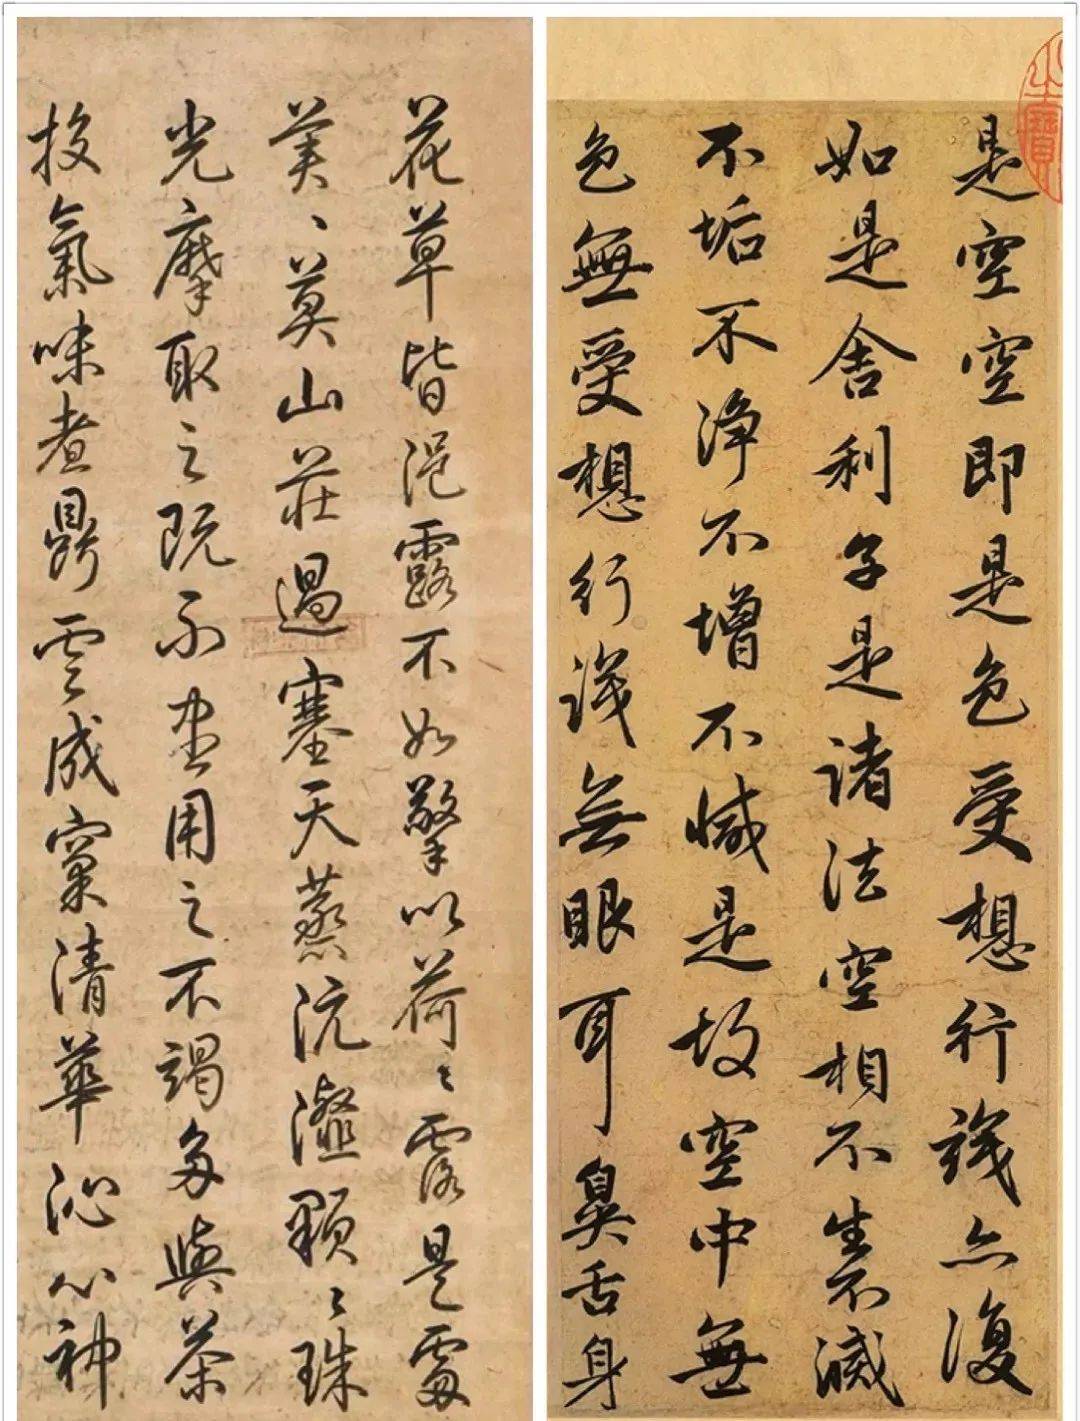 是空空即是色受想行識亦復
如是舍利子是諸法空相不生不滅
不垢不淨不增不減是故空中無
色無受想行識無眼耳鼻舌身
之寶
花草皆浥露不如擎以荷〻露是露
英〻莫山莊過塞天蒸沆瀣顆〻珠
光摩取之既不盡用之不竭多與茶
投氣味煮鼎雲成窠清華沁心神